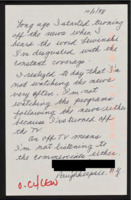 10/1/98
Long ago I started turning
off the news when I
hear the word Lewinski
I'm disgusted with the
constant coverage.
I realized today that I'm
not watching the news
very often. I'm not
watching the programs
following the news either
because I've turned off
the TV
An off TV means
I'm not listening to
the commercials either
Poughkeepsie, NY